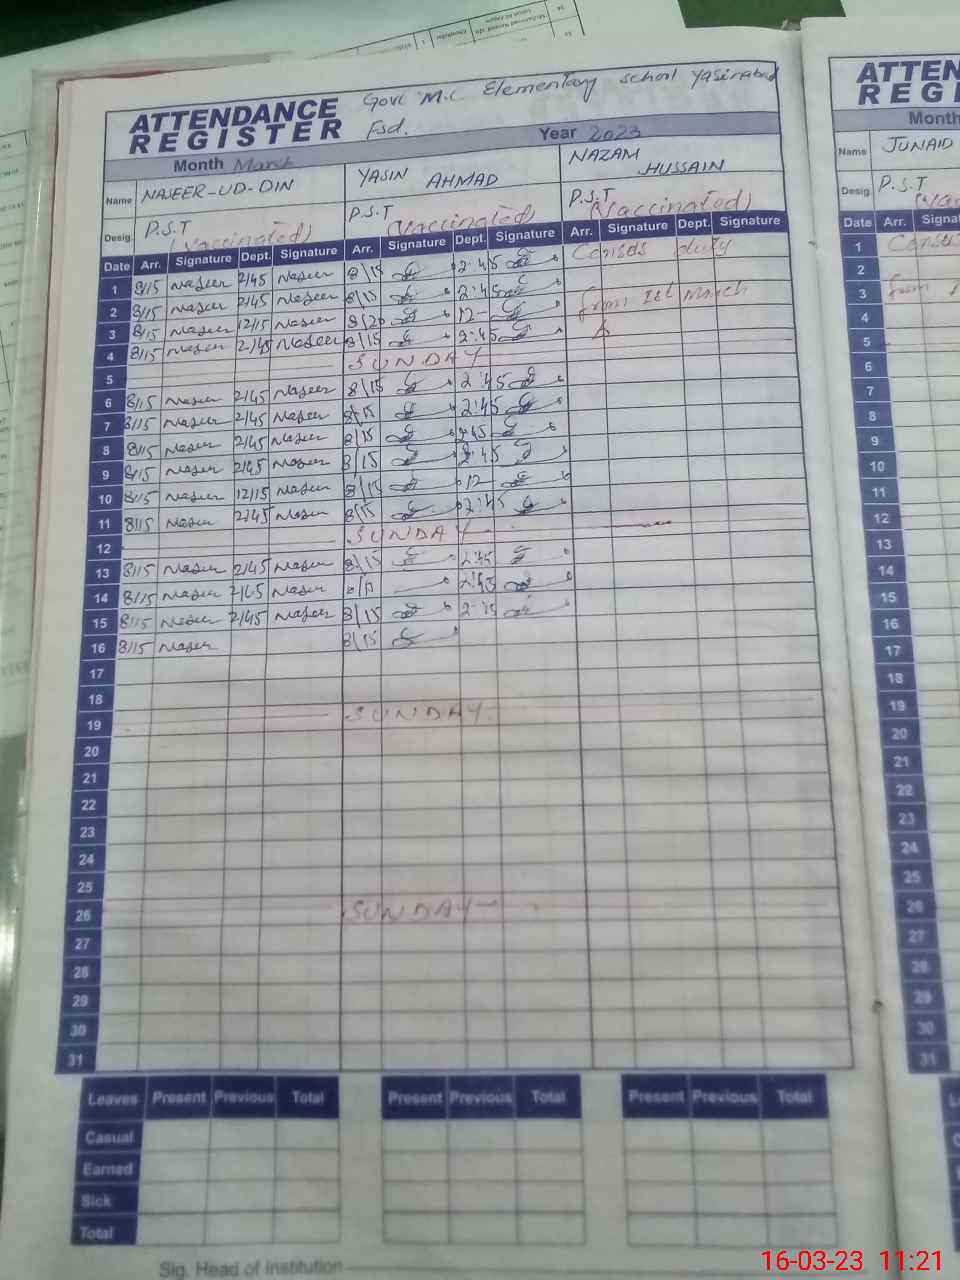 Govt M.C Elementary school Yasirabad
ATTENDANCE
REGISTER
Fsd.
Month March
Year 2023
Name NASEER-UD-DIN YASIN AHMAD NAZAM HUSSAIN
Desig. P.S.T P.S.T P.S.T
(Vaccinated) (Vaccinated) (Vaccinated)
Date Arr. Signature Dept. Signature Arr. Signature Dept. Signature Arr. Signature Dept. Signature
1 8/15 Naseer 2/45 Naseer 8/15 2:45 Census duty
2 8/15 Naseer 2/45 Naseer 8/15 2:45
3 8/15 Naseer 12/15 Naseer 8/20 12 from 1st March
4 8/15 Naseer 2/45 Naseer 8/15 2:45
5 SUNDAY
6 8/15 Naseer 2/45 Naseer 8/15 2:45
7 8/15 Naseer 2/45 Naseer 8/15 2:45
8 8/15 Naseer 2/45 Naseer 8/15 2:45
9 8/15 Naseer 2/45 Naseer 8/15 2:45
10 8/15 Naseer 12/15 Naseer 8/15 12
11 8/15 Naseer 2/45 Naseer 8/15 2:45
12 SUNDAY
13 8/15 Naseer 2/45 Naseer 8/15 2:45
14 8/15 Naseer 2/45 Naseer 2:45
15 8/15 Naseer 2/45 Naseer 8/15
16 8/15 Naseer 8/15
17
18
19 SUNDAY
20
21
22
23
24
25
26 SUNDAY
27
28
29
30
31
Leaves Present Previous Total Present Previous Total Present Previous Total
Casual
Earned
Sick
Total
Sig. Head of Institution
ATTEN
REGI
Month
Name JUNAID
Desig. P.S.T
Date Arr.
1
2
3 from
4
5
6
7
8
9
10
11
12
13
14
15
16
17
18
19
20
21
22
23
24
25
26
27
28
29
30
31
16-03-23 11:21